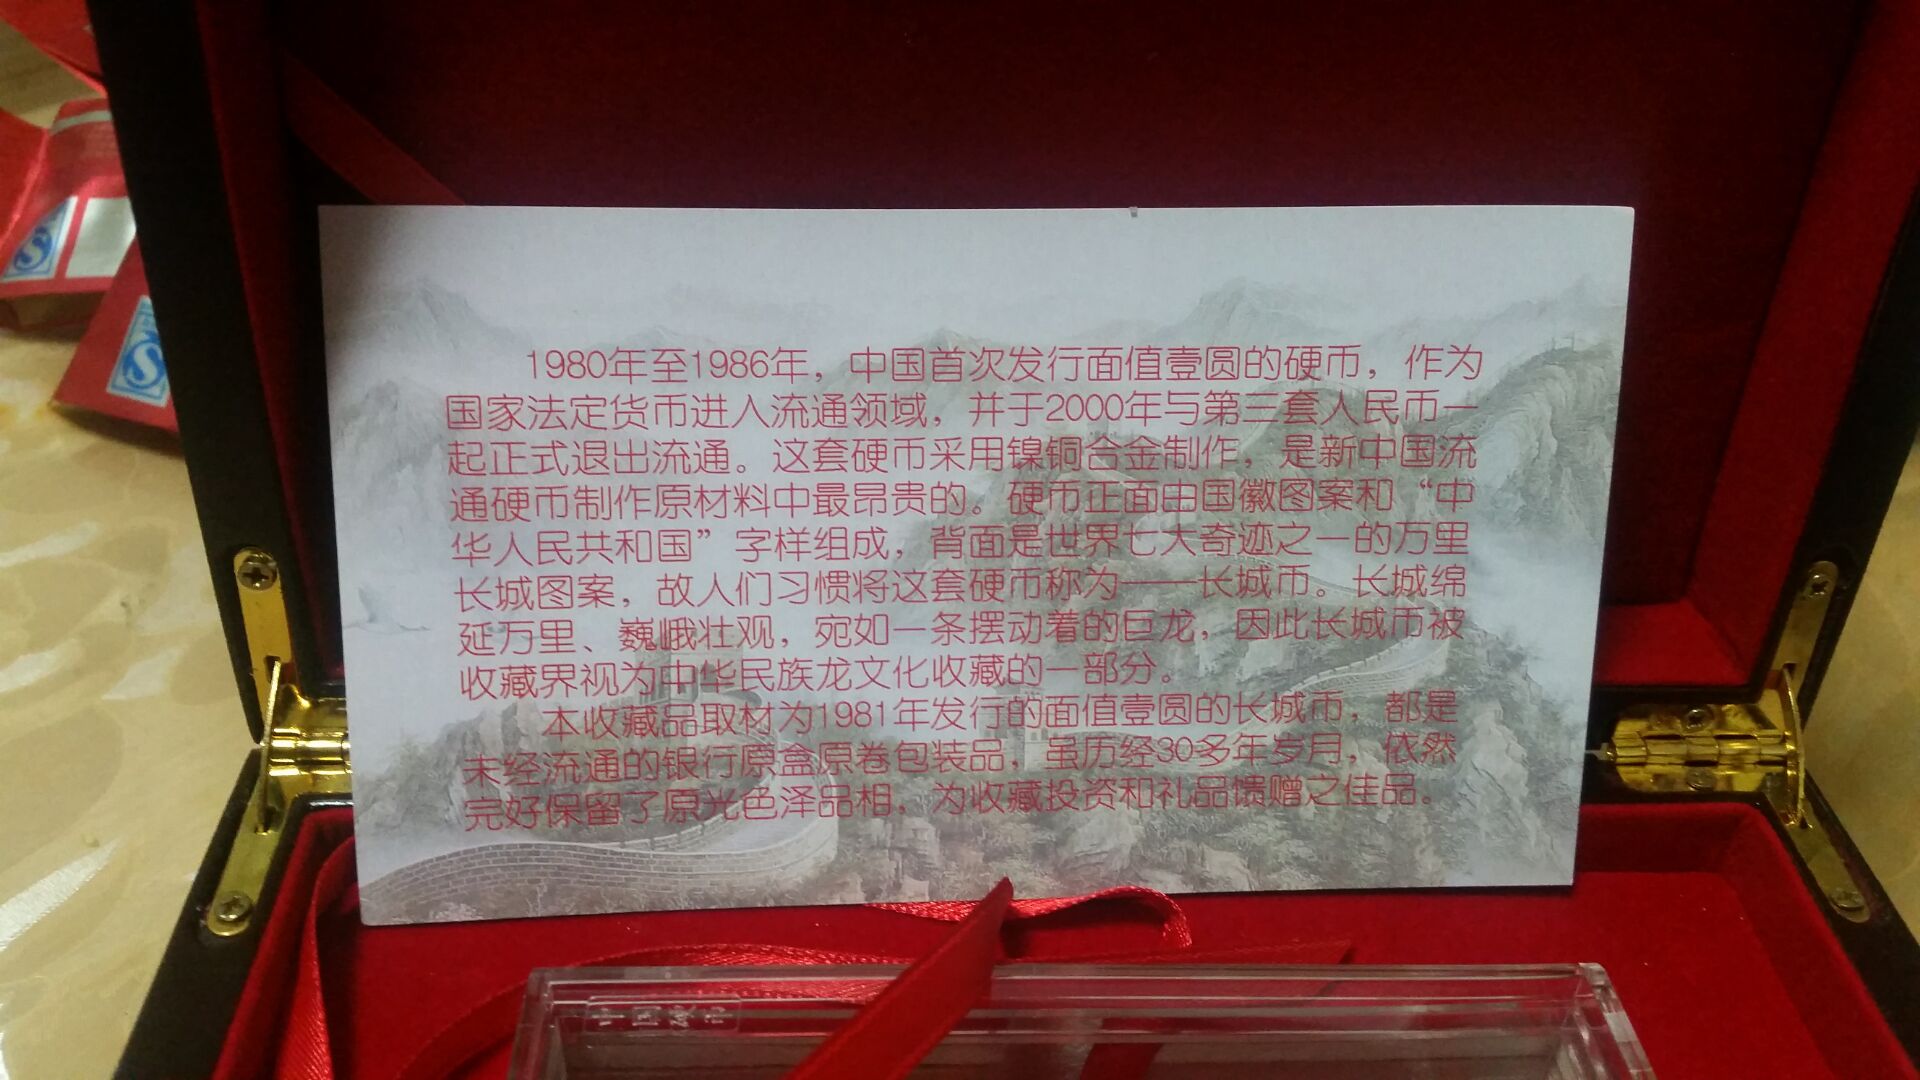 1980年至1986年，中国首次发行面值壹圆的硬币，作为
国家法定货币进入流通领域，并于2000年与第三套人民币一
起正式退出流通。这套硬币采用镍铜合金制作，是新中国流
通硬币制作原材料中最昂贵的。硬币正面由国徽图案和“中
华人民共和国”字样组成，背面是世界七大奇迹之一的万里
长城图案，故人们习惯将这套硬币称为——长城币。长城绵
延万里、巍峨壮观，宛如一条摆动着的巨龙，因此长城币被
收藏界视为中华民族龙文化收藏的一部分。
本收藏品取材为1981年发行的面值壹圆的长城币，都是
未经流通的银行原盒原卷包装品，虽历经30多年岁月，依然
完好保留了原光色泽品相，为收藏投资和礼品馈赠之佳品。
中国硬币